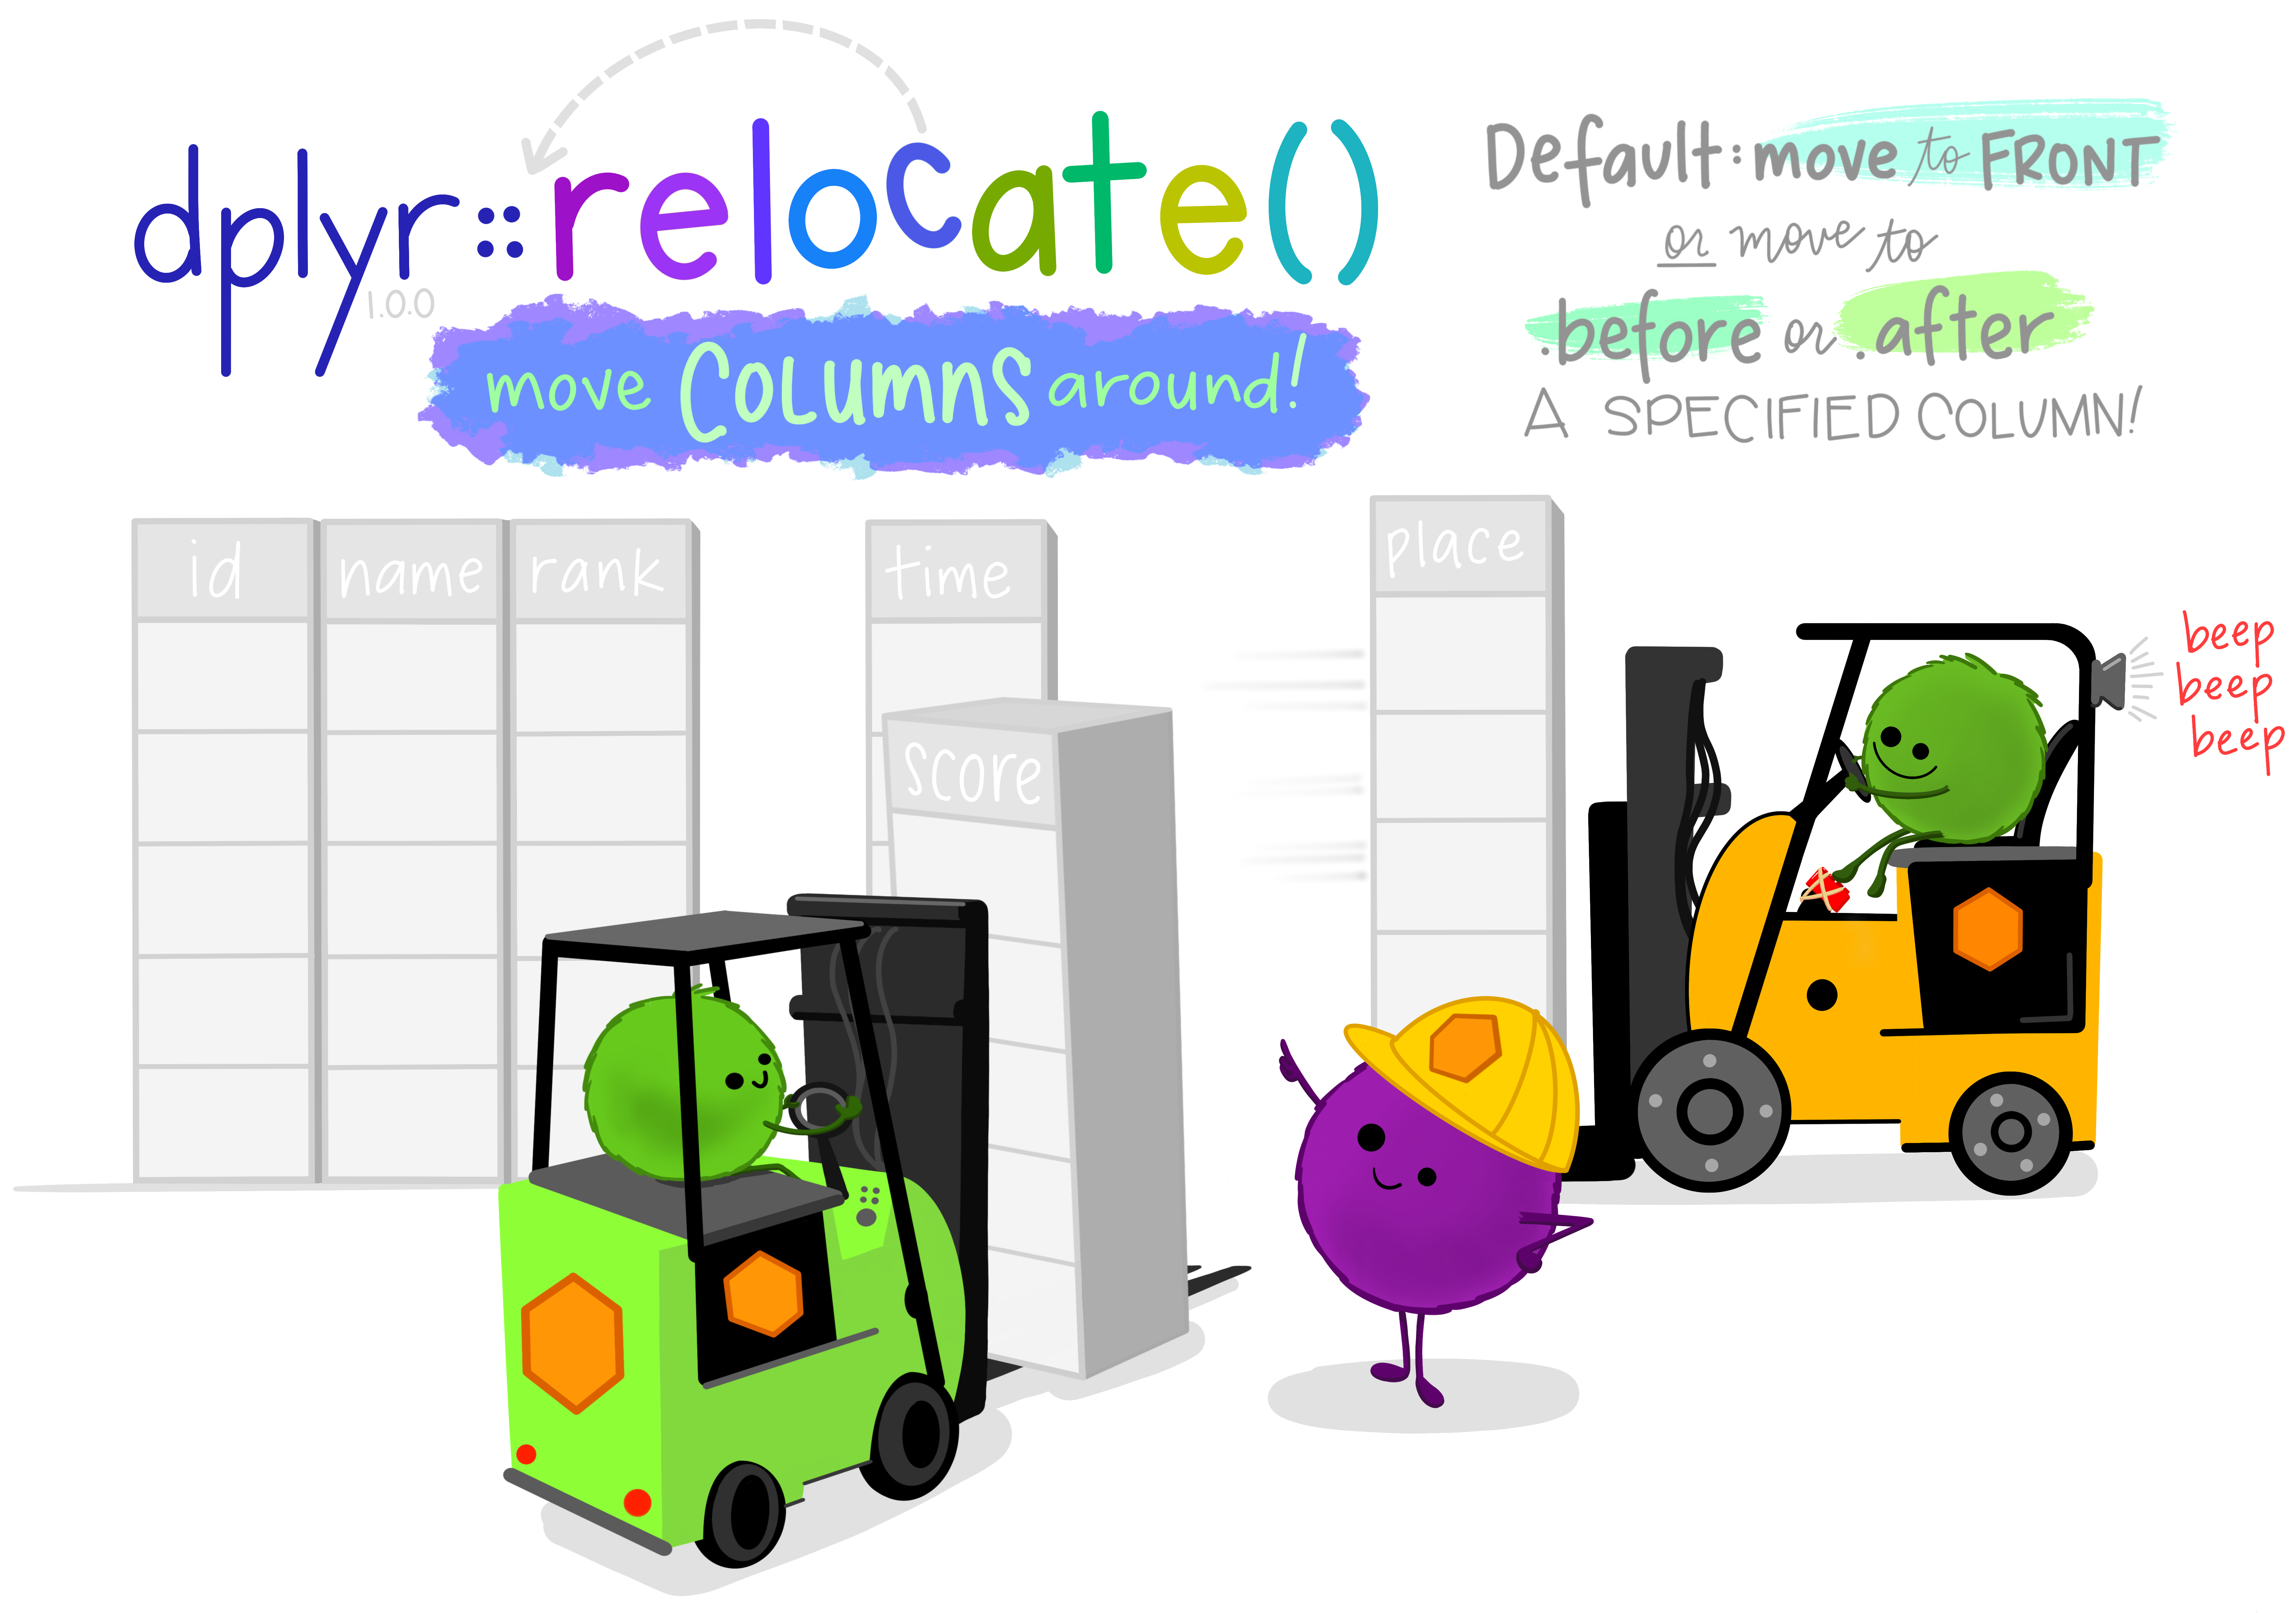 dplyr::relocate()
1.0.0
move Columns around!
Default: move to FRONT
or move to
.before or .after
A SPECIFIED COLUMN!
id
name
rank
time
place
score
beep
beep
beep